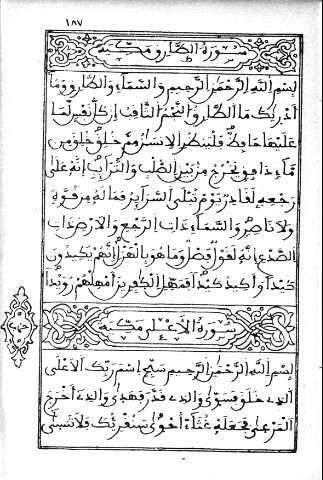 ١٨٧
سورة الطارق مكية
بسم الله الرحمن الرحيم والسماء والطارق وما
أدريك ما الطارق النجم الثاقب إن كل نفس لما
عليها حافظ فلينظر الانسان مم خلق خلق من
ماء دافق يخرج من بين الصلب والترائب إنه على
رجعه لقادر يوم تبلى السرائر فما له من قوة
ولا ناصر والسماء ذات الرجع والارض ذات
الصدع إنه لقول فصل وما هو بالهزل إنهم يكيدون
كيدا وأكيد كيدا فمهل الكفرين أمهلهم رويدا
سورة الأعلى مكية
بسم الله الرحمن الرحيم سبح اسم ربك الأعلى
الذي خلق فسوى والذي قدر فهدى والذي أخرج
المرعى فجعله غثاء أحوى سنقرئك فلا تنسى